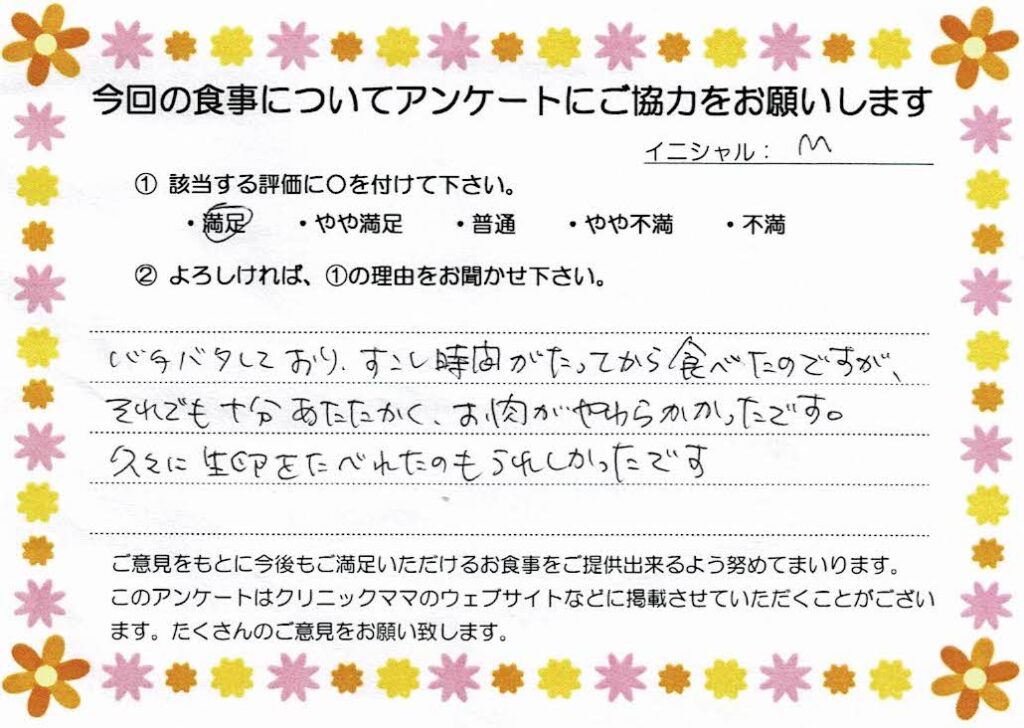 今回の食事についてアンケートにご協力をお願いします
イニシャル： M
① 該当する評価に〇を付けて下さい。
・満足 ・やや満足 ・普通 ・やや不満 ・不満
② よろしければ、①の理由をお聞かせ下さい。
バタバタしており、すこし時間がたってから食べたのですが、
それでも十分あたたかく、お肉がやわらかかったです。
久々に生卵をたべれたのもうれしかったです
ご意見をもとに今後もご満足いただけるお食事をご提供出来るよう努めてまいります。
このアンケートはクリニックママのウェブサイトなどに掲載させていただくことがござい
ます。たくさんのご意見をお願い致します。